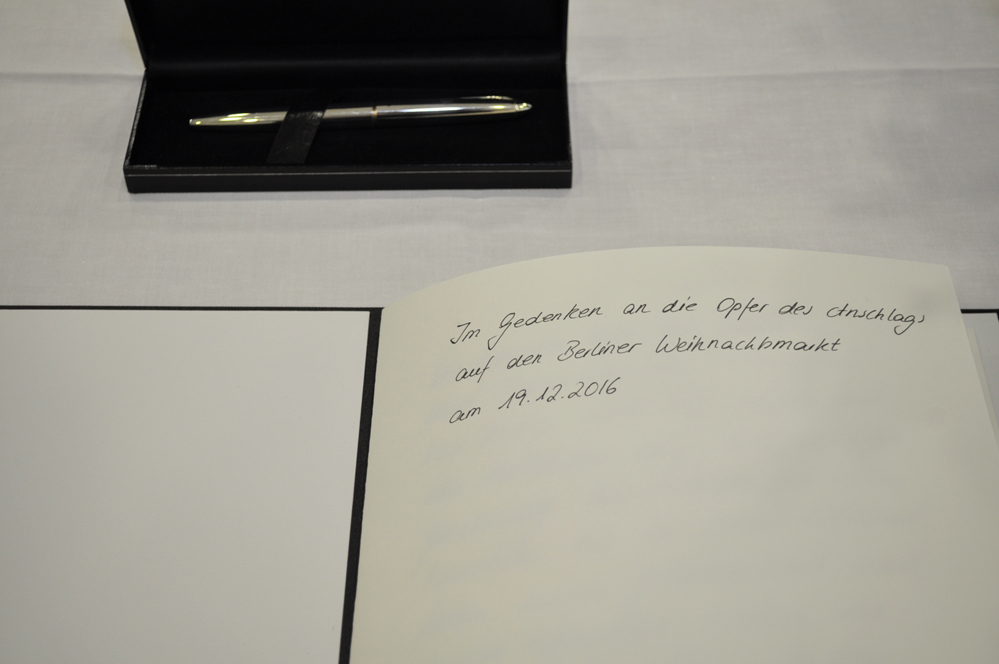 Im Gedenken an die Opfer des Anschlags
auf den Berliner Weihnachtsmarkt
am 19.12.2016